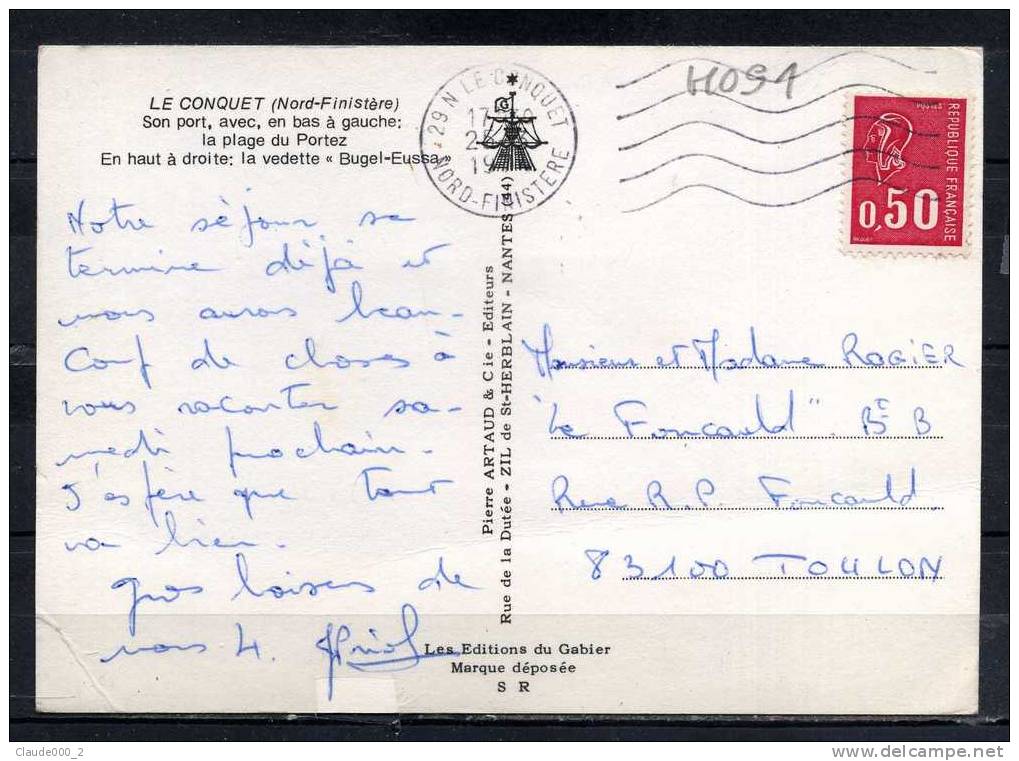 LE CONQUET (Nord-Finistère)
Son port, avec, en bas à gauche:
la plage du Portez
En haut à droite: la vedette « Bugel-Eussa »
29 N LE CONQUET
NORD-FINISTÈRE
H091
POSTES
REPUBLIQUE FRANÇAISE
0,50
Notre séjour se
termine déjà et
nous aurons beau-
coup de choses à
vous raconter sa-
medi prochain.
J'espère que tout
va bien.
gros baisers de
nous 4.
Pierre ARTAUD & Cie - Editeurs
Rue de la Dutée - ZIL de St-HERBLAIN - NANTES (44)
Monsieur et Madame ROGIER
"Le Foucauld" Bt B
Rue R.P. Foucauld
83100 TOULON
Les Editions du Gabier
Marque déposée
S R
Claude000_2
www.delcampe.net